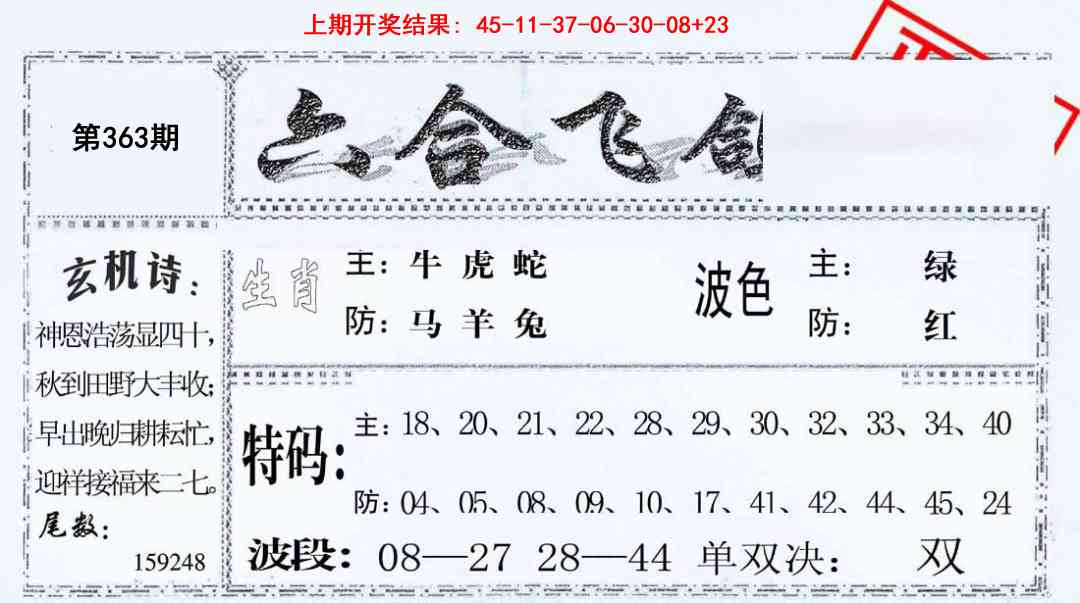 上期开奖结果: 45-11-37-06-30-08+23
第363期
六合飞
玄机诗:
神恩浩荡显四十,
秋到田野大丰收;
早出晚归耕耘忙,
迎祥接福来二七。
尾数:
159248
生肖
主: 牛 虎 蛇
防: 马 羊 兔
波色
主: 绿
防: 红
特码:
主: 18、20、21、22、28、29、30、32、33、34、40
防: 04、05、08、09、10、17、41、42、44、45、24
波段: 08—27 28—44 单双决: 双